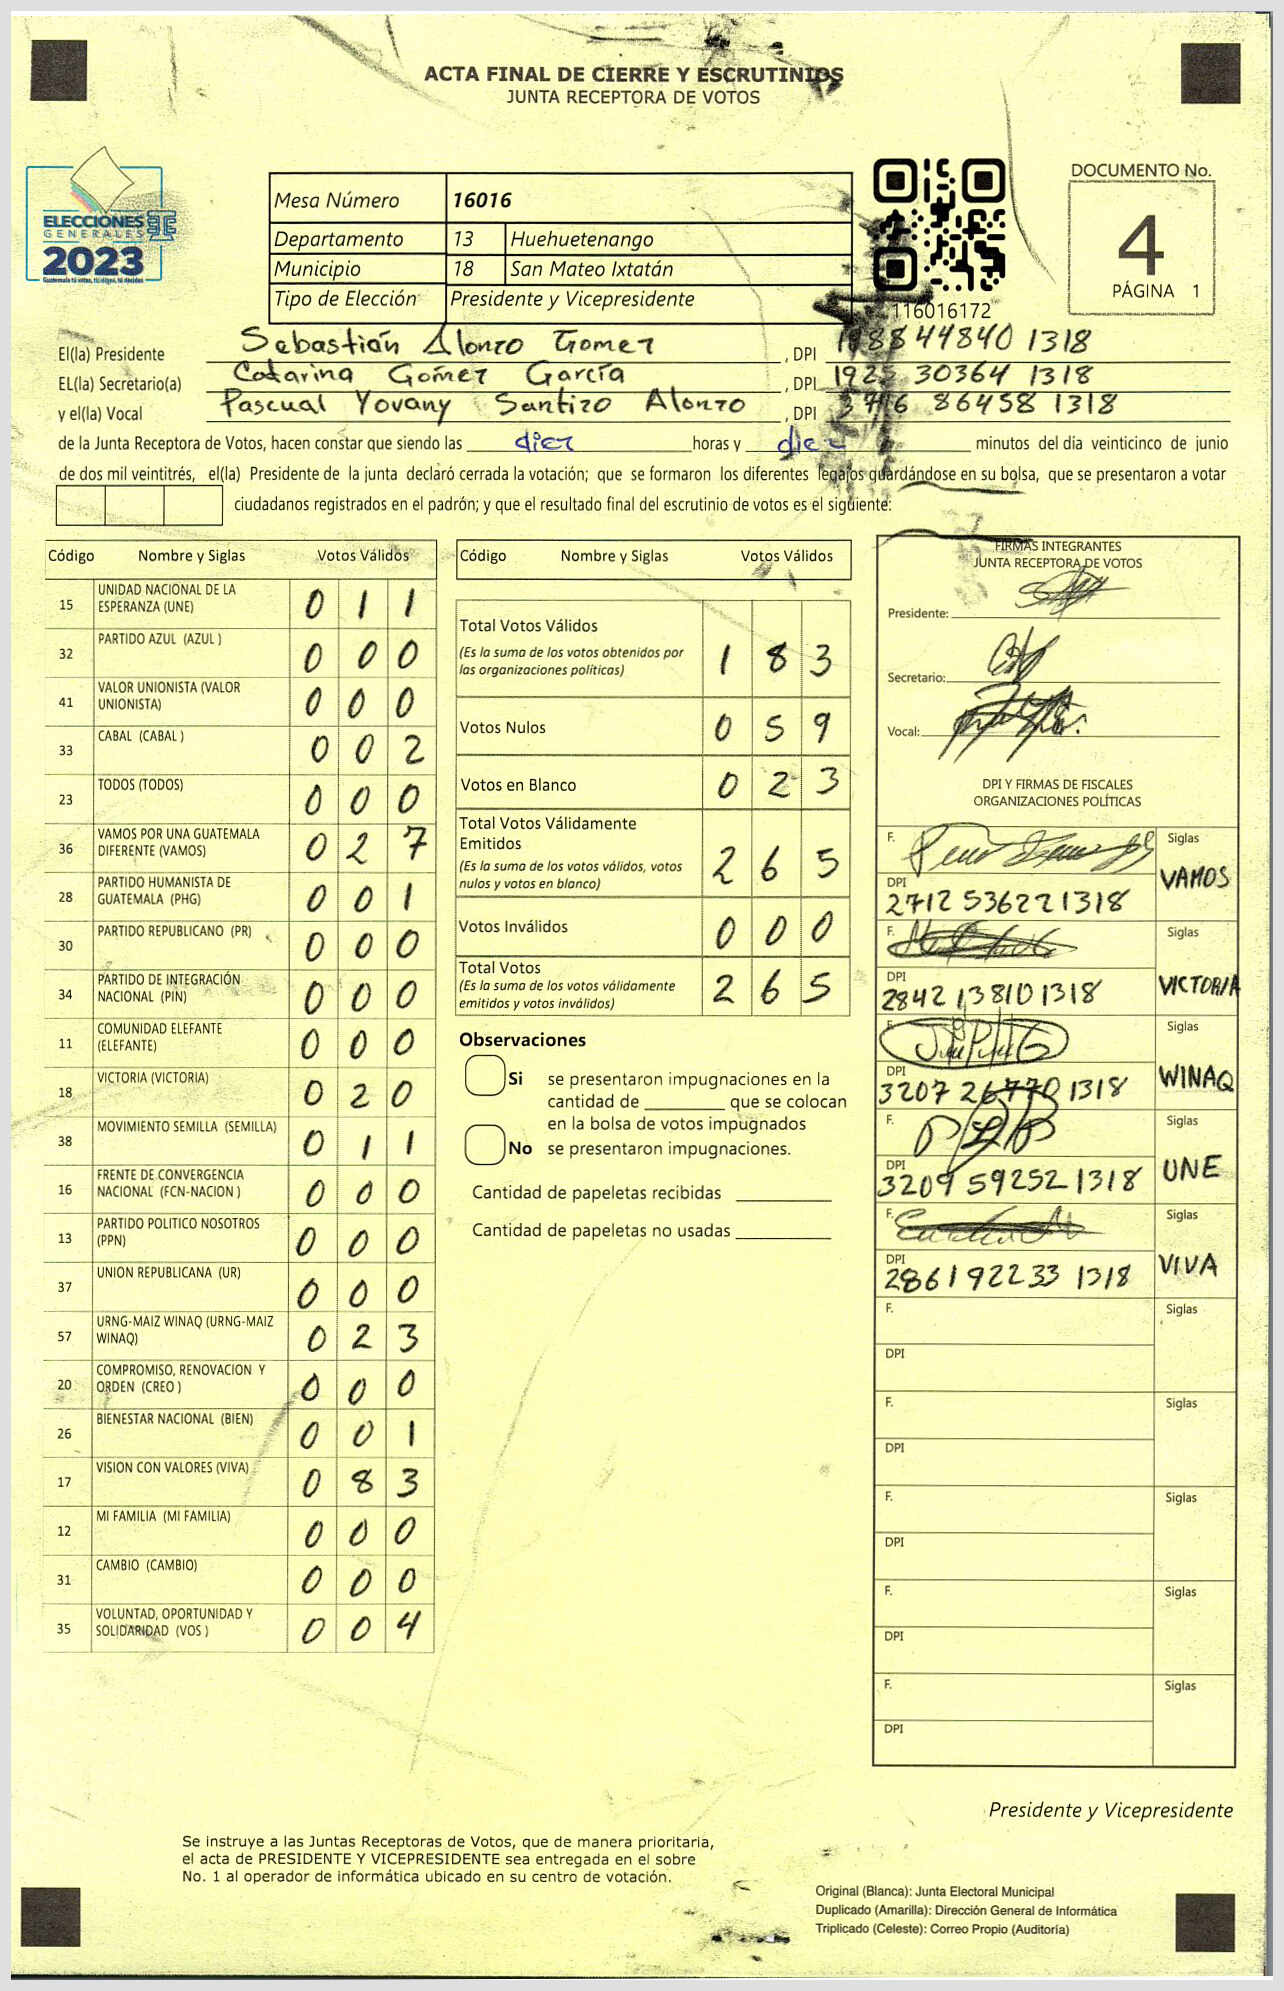 ACTA FINAL DE CIERRE Y ESCRUTINIOS
JUNTA RECEPTORA DE VOTOS
ELECCIONES
GENERALES
2023
Guatemala tú votas, tú eliges, tú decides
Mesa Número 16016
Departamento 13 Huehuetenango
Municipio 18 San Mateo Ixtatán
Tipo de Elección Presidente y Vicepresidente
116016172
DOCUMENTO No.
4
PÁGINA 1
El(la) Presidente Sebastián Alonzo Gomez, DPI 44840 1318
EL(la) Secretario(a) Catarina Gómez García, DPI 1925 30364 1318
y el(la) Vocal Pascual Yovany Santizo Alonzo, DPI 86458 1318
de la Junta Receptora de Votos, hacen constar que siendo las diez horas y minutos del día veinticinco de junio
de dos mil veintitrés, el(la) Presidente de la junta declaró cerrada la votación; que se formaron los diferentes legajos guardándose en su bolsa, que se presentaron a votar
ciudadanos registrados en el padrón; y que el resultado final del escrutinio de votos es el siguiente:
Código Nombre y Siglas Votos Válidos
15 UNIDAD NACIONAL DE LA ESPERANZA (UNE) 0 1 1
32 PARTIDO AZUL (AZUL ) 0 0 0
41 VALOR UNIONISTA (VALOR UNIONISTA) 0 0 0
33 CABAL (CABAL ) 0 0 2
23 TODOS (TODOS) 0 0 0
36 VAMOS POR UNA GUATEMALA DIFERENTE (VAMOS) 0 2 7
28 PARTIDO HUMANISTA DE GUATEMALA (PHG) 0 0 1
30 PARTIDO REPUBLICANO (PR) 0 0 0
34 PARTIDO DE INTEGRACIÓN NACIONAL (PIN) 0 0 0
11 COMUNIDAD ELEFANTE (ELEFANTE) 0 0 0
18 VICTORIA (VICTORIA) 0 2 0
38 MOVIMIENTO SEMILLA (SEMILLA) 0 1 1
16 FRENTE DE CONVERGENCIA NACIONAL (FCN-NACION ) 0 0 0
13 PARTIDO POLITICO NOSOTROS (PPN) 0 0 0
37 UNION REPUBLICANA (UR) 0 0 0
57 URNG-MAIZ WINAQ (URNG-MAIZ WINAQ) 0 2 3
20 COMPROMISO, RENOVACION Y ORDEN (CREO ) 0 0 0
26 BIENESTAR NACIONAL (BIEN) 0 0 1
17 VISION CON VALORES (VIVA) 0 8 3
12 MI FAMILIA (MI FAMILIA) 0 0 0
31 CAMBIO (CAMBIO) 0 0 0
35 VOLUNTAD, OPORTUNIDAD Y SOLIDARIDAD (VOS ) 0 0 4
Código Nombre y Siglas Votos Válidos
Total Votos Válidos 1 8 3
(Es la suma de los votos obtenidos por
las organizaciones políticas)
Votos Nulos 0 5 9
Votos en Blanco 0 2 3
Total Votos Válidamente
Emitidos 2 6 5
(Es la suma de los votos válidos, votos
nulos y votos en blanco)
Votos Inválidos 0 0 0
Total Votos 2 6 5
(Es la suma de los votos válidamente
emitidos y votos inválidos)
Observaciones
Si se presentaron impugnaciones en la
cantidad de ________ que se colocan
en la bolsa de votos impugnados
No se presentaron impugnaciones.
Cantidad de papeletas recibidas
Cantidad de papeletas no usadas
FIRMAS INTEGRANTES
JUNTA RECEPTORA DE VOTOS
Presidente:
Secretario:
Vocal:
DPI Y FIRMAS DE FISCALES
ORGANIZACIONES POLÍTICAS
F. Siglas
DPI VAMOS
2712 53622 1318
F. Siglas
DPI VICTORIA
2842 13810 1318
F. Siglas
DPI WINAQ
3207 26770 1318
F. Siglas
DPI UNE
3209 59252 1318
F. Siglas
DPI VIVA
2861 92233 1318
F. Siglas
DPI
F. Siglas
DPI
F. Siglas
DPI
F. Siglas
DPI
F. Siglas
DPI
Presidente y Vicepresidente
Se instruye a las Juntas Receptoras de Votos, que de manera prioritaria,
el acta de PRESIDENTE Y VICEPRESIDENTE sea entregada en el sobre
No. 1 al operador de informática ubicado en su centro de votación.
Original (Blanca): Junta Electoral Municipal
Duplicado (Amarilla): Dirección General de Informática
Triplicado (Celeste): Correo Propio (Auditoría)